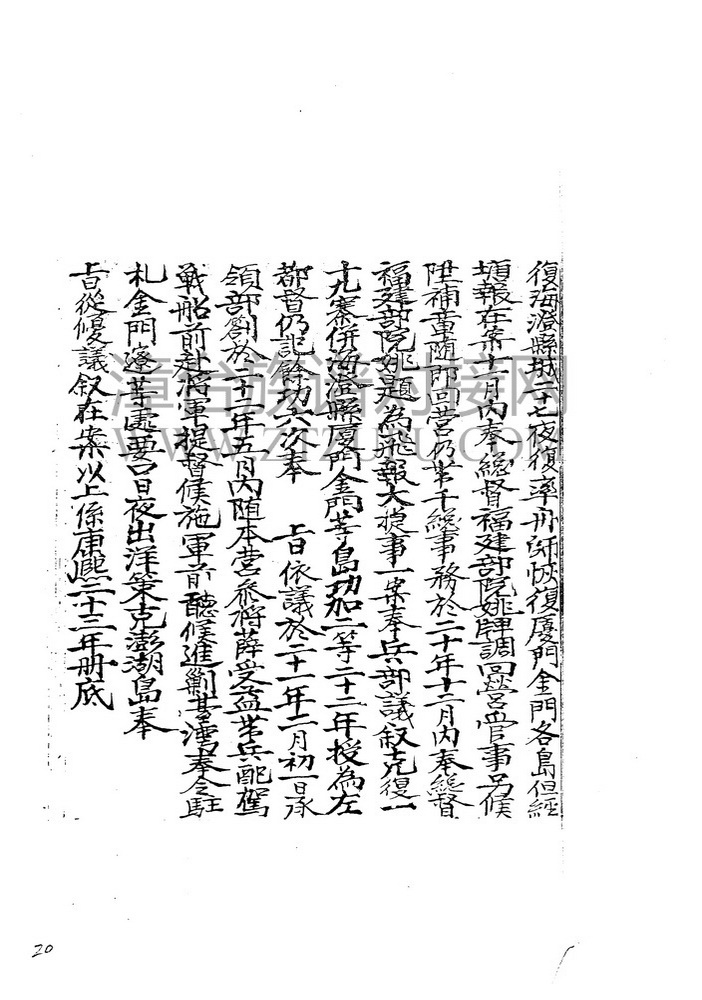 復海澄縣城十七夜復率舟師恢復厦門金門各島但經
塡報在案十一月內奉總督福建部院姚牌調回營管事另候
陞補童隨即回營仍管千總事務於二十年十二月內奉總督
福建部院姚題為飛報大捷事一案奉兵部議叙克復一
十九寨併海澄縣厦門金門等島功加二等二十二年授為左
都督仍記餘功六次奉 旨依議於二十一年二月初一日承
領部劄於二十二年五月內隨本營叅將薛受益帶兵配駕
戰船前赴將軍提督侯施軍前聽候進勦臺灣奉令駐
札金門遼等處要口日夜出洋策克澎湖島奉
旨從優議叙在案以上係康熙二十三年册底
20
漳台族谱对接网
WWW.ZTZUPU.COM